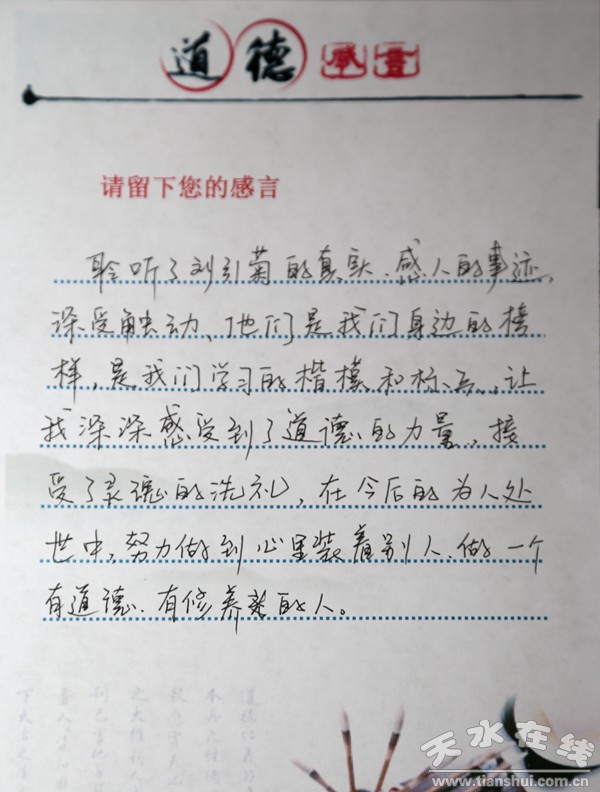 道德感言
请留下您的感言
聆听了刘引菊的真实、感人的事迹，
深受触动、他们是我们身边的榜
样，是我们学习的楷模和标兵，让
我深深感受到了道德的力量，接
受了灵魂的洗礼，在今后的为人处
世中，努力做到心里装着别人、做一个
有道德、有修养的人。
天水在线
www.tianshui.com.cn